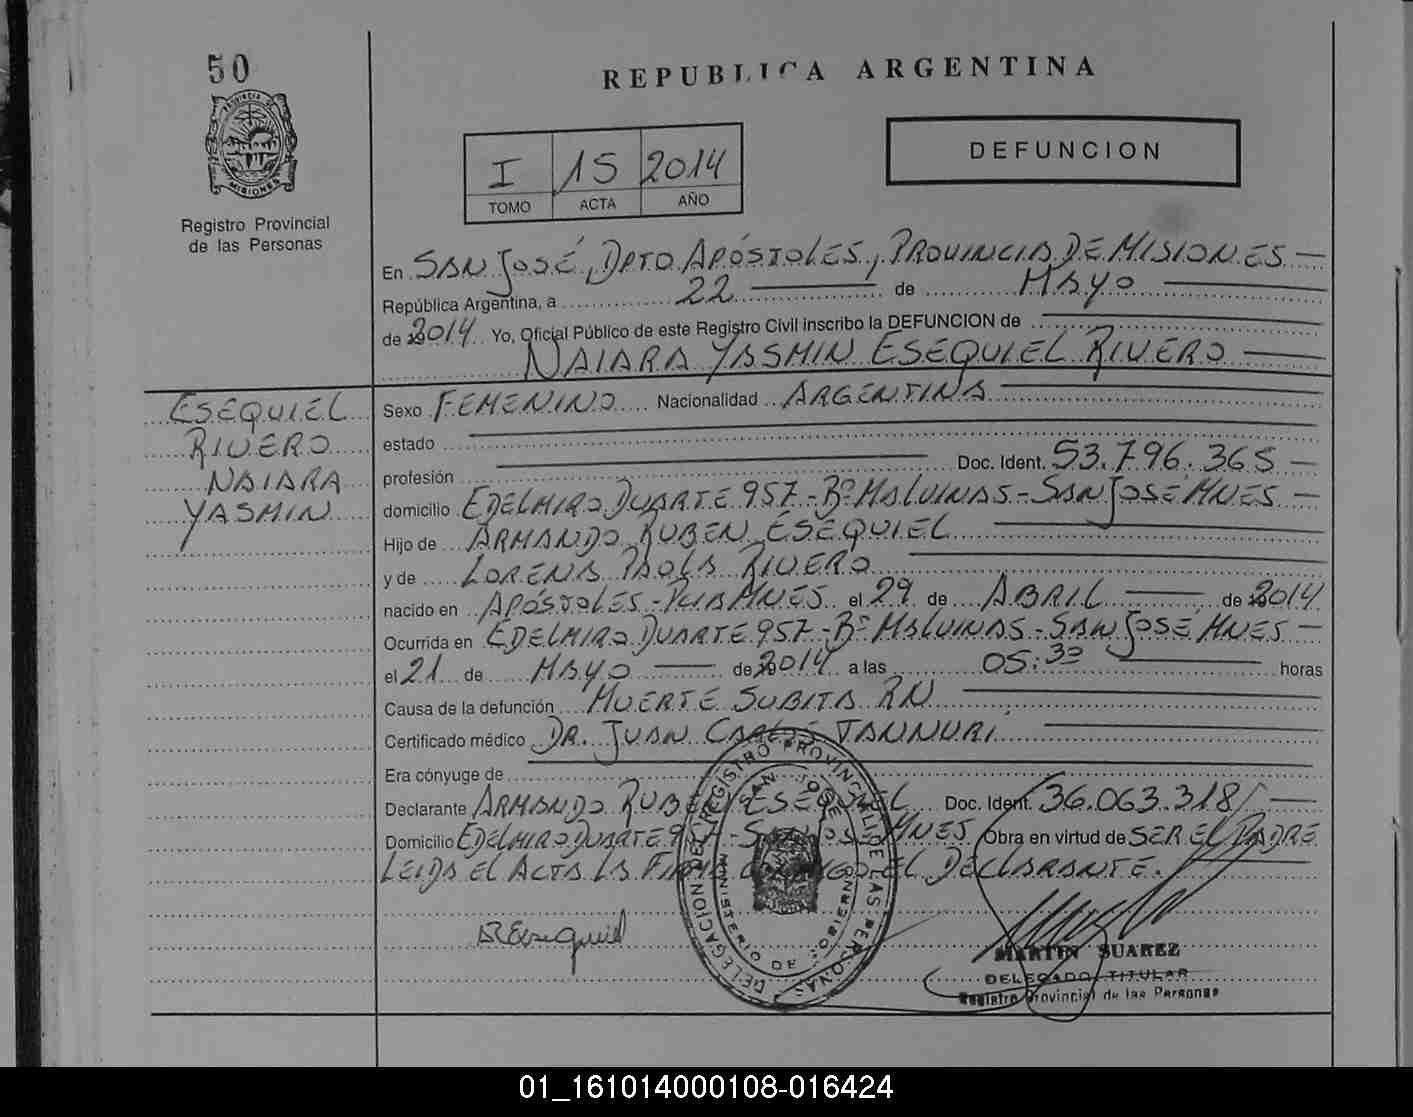 50
REPUBLICA ARGENTINA
PROVINCIA DE
MISIONES
Registro Provincial
de las Personas
I 15 2014
TOMO ACTA AÑO
DEFUNCION
En SAN JOSÉ, DPTO APÓSTOLES, PROVINCIA DE MISIONES —
República Argentina, a 22 — de MAYO —
de 2014 Yo, Oficial Público de este Registro Civil inscribo la DEFUNCION de —
NAIARA YASMIN ESEQUIEL RIVERO —
ESEQUIEL
RIVERO
NAIARA
YASMIN
Sexo FEMENINO Nacionalidad ARGENTINA —
estado —
profesión — Doc. Ident. 53.796.365 —
domicilio EDELMIRO DUARTE 957 - Bº MALVINAS - SAN JOSÉ MNES —
Hijo de ARMANDO RUBEN ESEQUIEL —
y de LORENA PAOLA RIVERO —
nacido en APÓSTOLES - MNES el 29 de ABRIL — de 2014
Ocurrida en EDELMIRO DUARTE 957 - Bº MALVINAS - SAN JOSÉ MNES —
el 21 de MAYO — de 2014 a las 05:30 — horas
Causa de la defunción MUERTE SUBITA RN —
Certificado médico DR. JUAN CARLOS TANNURI —
Era cónyuge de —
Declarante ARMANDO RUBEN ESEQUIEL Doc. Ident. 36.063.318 —
Domicilio EDELMIRO DUARTE 957 - SAN JOSÉ MNES Obra en virtud de SER EL PADRE
LEIDA EL ACTA LA FIRMA CONMIGO EL DECLARANTE. —
DELEGACION DEL REGISTRO PROVINCIAL DE LAS PERSONAS
SAN JOSE
MINISTERIO DE GOBIERNO
AREsequiel
MARTIN SUAREZ
DELEGADO TITULAR
Registro Provincial de las Personas
01_161014000108-016424